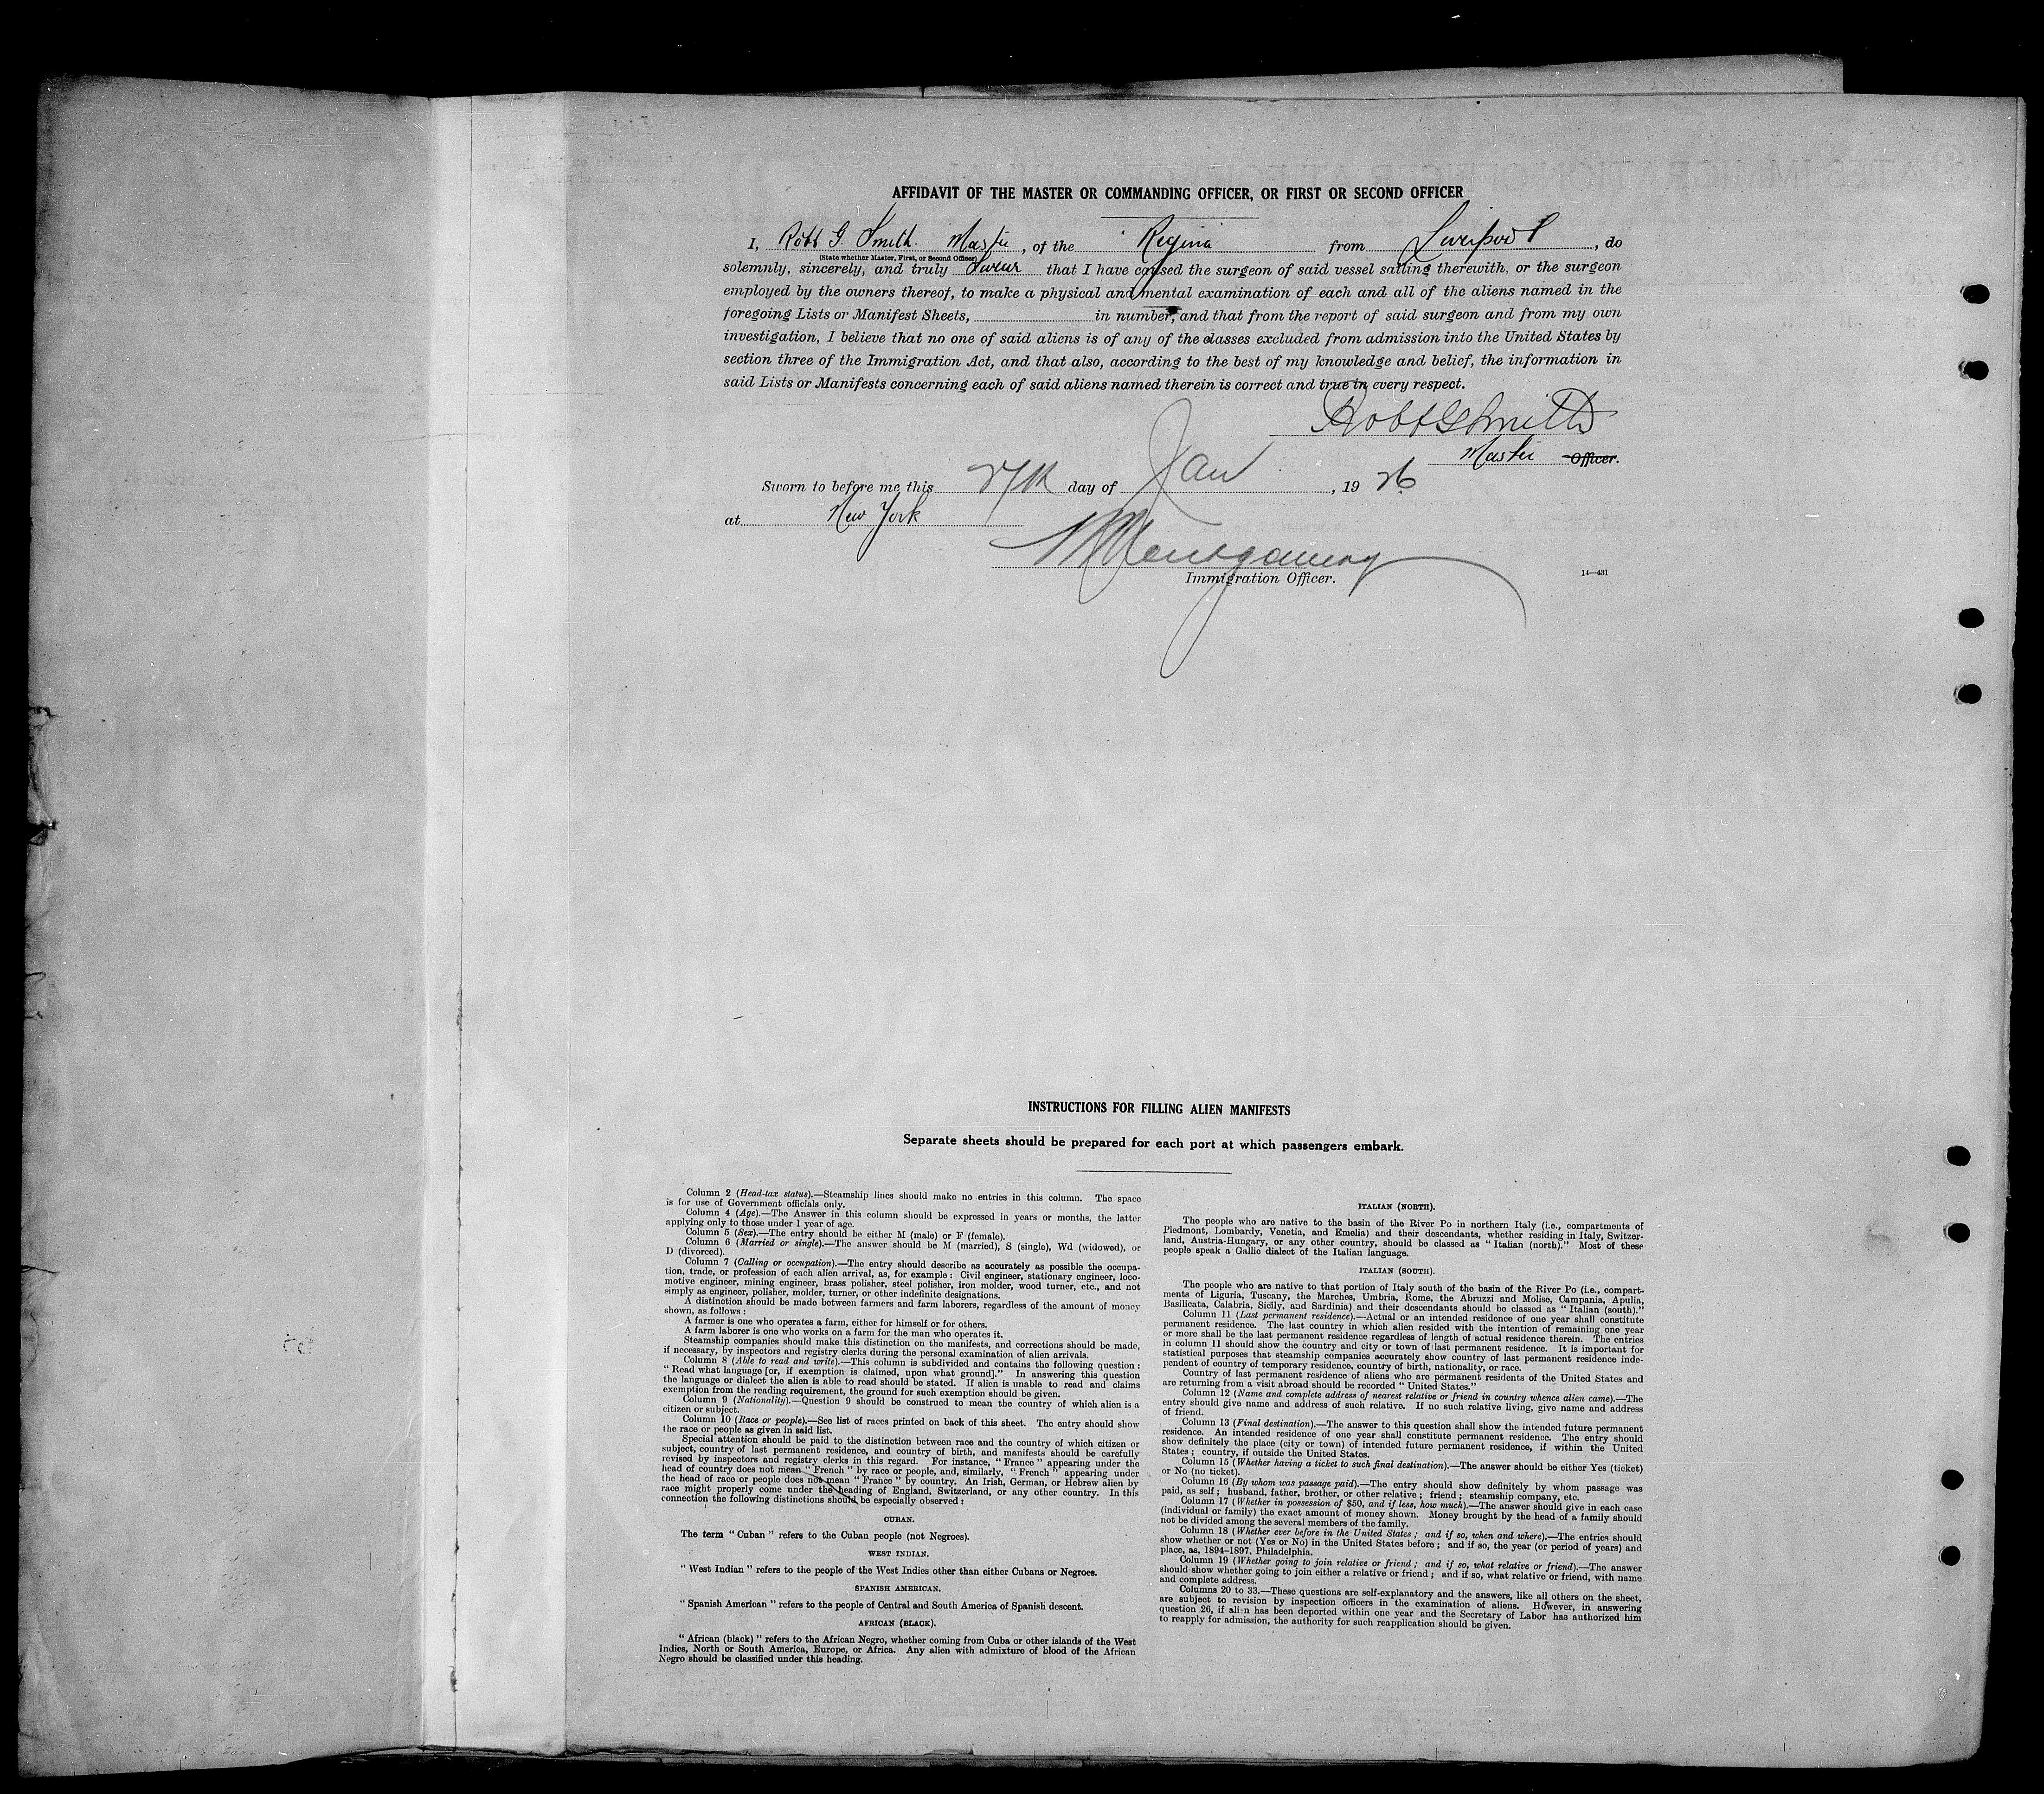 AFFIDAVIT OF THE MASTER OR COMMANDING OFFICER, OR FIRST OR SECOND OFFICER
I, Robt G. Smith. Master, of the "Regina from Liverpool, do
(State whether Master, First, or Second Officer)
solemnly, sincerely, and truly Swear that I have caused the surgeon of said vessel sailing therewith, or the surgeon
employed by the owners thereof, to make a physical and mental examination of each and all of the aliens named in the
foregoing Lists or Manifest Sheets, in number, and that from the report of said surgeon and from my own
investigation, I believe that no one of said aliens is of any of the classes excluded from admission into the United States by
section three of the Immigration Act, and that also, according to the best of my knowledge and belief, the information in
said Lists or Manifests concerning each of said aliens named therein is correct and true in every respect.
Robt G Smith
Master Officer.
Sworn to before me this 27th day of Jan, 19 26
at New York
Montgomery
Immigration Officer.
14—431
INSTRUCTIONS FOR FILLING ALIEN MANIFESTS
Separate sheets should be prepared for each port at which passengers embark.
Column 2 (Head-tax status).—Steamship lines should make no entries in this column. The space
is for use of Government officials only.
Column 4 (Age).—The Answer in this column should be expressed in years or months, the latter
applying only to those under 1 year of age.
Column 5 (Sex).—The entry should be either M (male) or F (female).
Column 6 (Married or single).—The answer should be M (married), S (single), Wd (widowed), or
D (divorced).
Column 7 (Calling or occupation).—The entry should describe as accurately as possible the occupa-
tion, trade, or profession of each alien arrival, as, for example: Civil engineer, stationary engineer, loco-
motive engineer, mining engineer, brass polisher, steel polisher, iron molder, wood turner, etc., and not
simply as engineer, polisher, molder, turner, or other indefinite designations.
A distinction should be made between farmers and farm laborers, regardless of the amount of money
shown, as follows:
A farmer is one who operates a farm, either for himself or for others.
A farm laborer is one who works on a farm for the man who operates it.
Steamship companies should make this distinction on the manifests, and corrections should be made,
if necessary, by inspectors and registry clerks during the personal examination of alien arrivals.
Column 8 (Able to read and write).—This column is subdivided and contains the following question:
"Read what language [or, if exemption is claimed, upon what ground]." In answering this question
the language or dialect the alien is able to read should be stated. If alien is unable to read and claims
exemption from the reading requirement, the ground for such exemption should be given.
Column 9 (Nationality).—Question 9 should be construed to mean the country of which alien is a
citizen or subject.
Column 10 (Race or people).—See list of races printed on back of this sheet. The entry should show
the race or people as given in said list.
Special attention should be paid to the distinction between race and the country of which citizen or
subject, country of last permanent residence, and country of birth, and manifests should be carefully
revised by inspectors and registry clerks in this regard. For instance, "France" appearing under the
head of country does not mean "French" by race or people, and, similarly, "French" appearing under
the head of race or people does not mean "France" by country. An Irish, German, or Hebrew alien by
race might properly come under the heading of England, Switzerland, or any other country. In this
connection the following distinctions should be especially observed:
CUBAN.
The term "Cuban" refers to the Cuban people (not Negroes).
WEST INDIAN.
"West Indian" refers to the people of the West Indies other than either Cubans or Negroes.
SPANISH AMERICAN.
"Spanish American" refers to the people of Central and South America of Spanish descent.
AFRICAN (BLACK).
"African (black)" refers to the African Negro, whether coming from Cuba or other islands of the West
Indies, North or South America, Europe, or Africa. Any alien with admixture of blood of the African
Negro should be classified under this heading.
ITALIAN (NORTH).
The people who are native to the basin of the River Po in northern Italy (i.e., compartments of
Piedmont, Lombardy, Venetia, and Emelia) and their descendants, whether residing in Italy, Switzer-
land, Austria-Hungary, or any other country, should be classed as "Italian (north)." Most of these
people speak a Gallic dialect of the Italian language.
ITALIAN (SOUTH).
The people who are native to that portion of Italy south of the basin of the River Po (i.e., compart-
ments of Liguria, Tuscany, the Marches, Umbria, Rome, the Abruzzi and Molise, Campania, Apulia,
Basilicata, Calabria, Sicily, and Sardinia) and their descendants should be classed as "Italian (south)."
Column 11 (Last permanent residence).—Actual or an intended residence of one year shall constitute
permanent residence. The last country in which alien resided with the intention of remaining one year
or more shall be the last permanent residence regardless of length of actual residence therein. The entries
in column 11 should show the country and city or town of last permanent residence. It is important for
statistical purposes that steamship companies accurately show country of last permanent residence inde-
pendent of country of temporary residence, country of birth, nationality, or race.
Country of last permanent residence of aliens who are permanent residents of the United States and
are returning from a visit abroad should be recorded "United States."
Column 12 (Name and complete address of nearest relative or friend in country whence alien came).—The
entry should give name and address of such relative. If no such relative living, give name and address
of friend.
Column 13 (Final destination).—The answer to this question shall show the intended future permanent
residence. An intended residence of one year shall constitute permanent residence. The entry should
show definitely the place (city or town) of intended future permanent residence, if within the United
States; country, if outside the United States.
Column 15 (Whether having a ticket to such final destination).—The answer should be either Yes (ticket)
or No (no ticket).
Column 16 (By whom was passage paid).—The entry should show definitely by whom passage was
paid, as self; husband, father, brother, or other relative; friend; steamship company, etc.
Column 17 (Whether in possession of $50, and if less, how much).—The answer should give in each case
(individual or family) the exact amount of money shown. Money brought by the head of a family should
not be divided among the several members of the family.
Column 18 (Whether ever before in the United States; and if so, when and where).—The entries should
show whether or not (Yes or No) in the United States before; and if so, the year (or period of years) and
place, as, 1894-1897, Philadelphia.
Column 19 (Whether going to join relative or friend; and if so, what relative or friend).—The answer
should show whether going to join either a relative or friend; and if so, what relative or friend, with name
and complete address.
Columns 20 to 33.—These questions are self-explanatory and the answers, like all others on the sheet,
are subject to revision by inspection officers in the examination of aliens. However, in answering
question 26, if alien has been deported within one year and the Secretary of Labor has authorized him
to reapply for admission, the authority for such reapplication should be given.